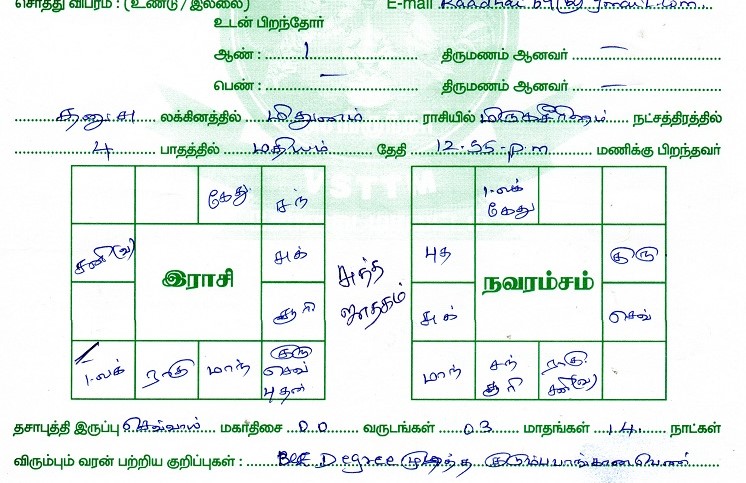 சொத்து விபரம் : (உண்டு / இல்லை) E-mail
உடன் பிறந்தோர்
ஆண் : 1 திருமணம் ஆனவர் —
பெண் : — திருமணம் ஆனவர் —
தனுசு லக்கினத்தில் மிதுனம் ராசியில் மிருகசீரிஷம் நட்சத்திரத்தில்
4 பாதத்தில் மதியம் தேதி 12.55 p.m மணிக்கு பிறந்தவர்
VSTTM
கேது சந்
சனி(வ) சுக்
சூரி
இராசி
ல/லக் ராகு மாந் குரு செவ் புதன்
சுத்த ஜாதகம்
ல/லக் கேது
புத குரு
சுக் செவ்
நவரம்சம்
மாந் சந் சூரி ராகு சனி(வ)
தசாபுத்தி இருப்பு செவ்வாய் மகாதிசை 00 வருடங்கள் 03 மாதங்கள் 14 நாட்கள்
விரும்பும் வரன் பற்றிய குறிப்புகள் : Degree முடித்த குடும்ப பாங்கான பெண்